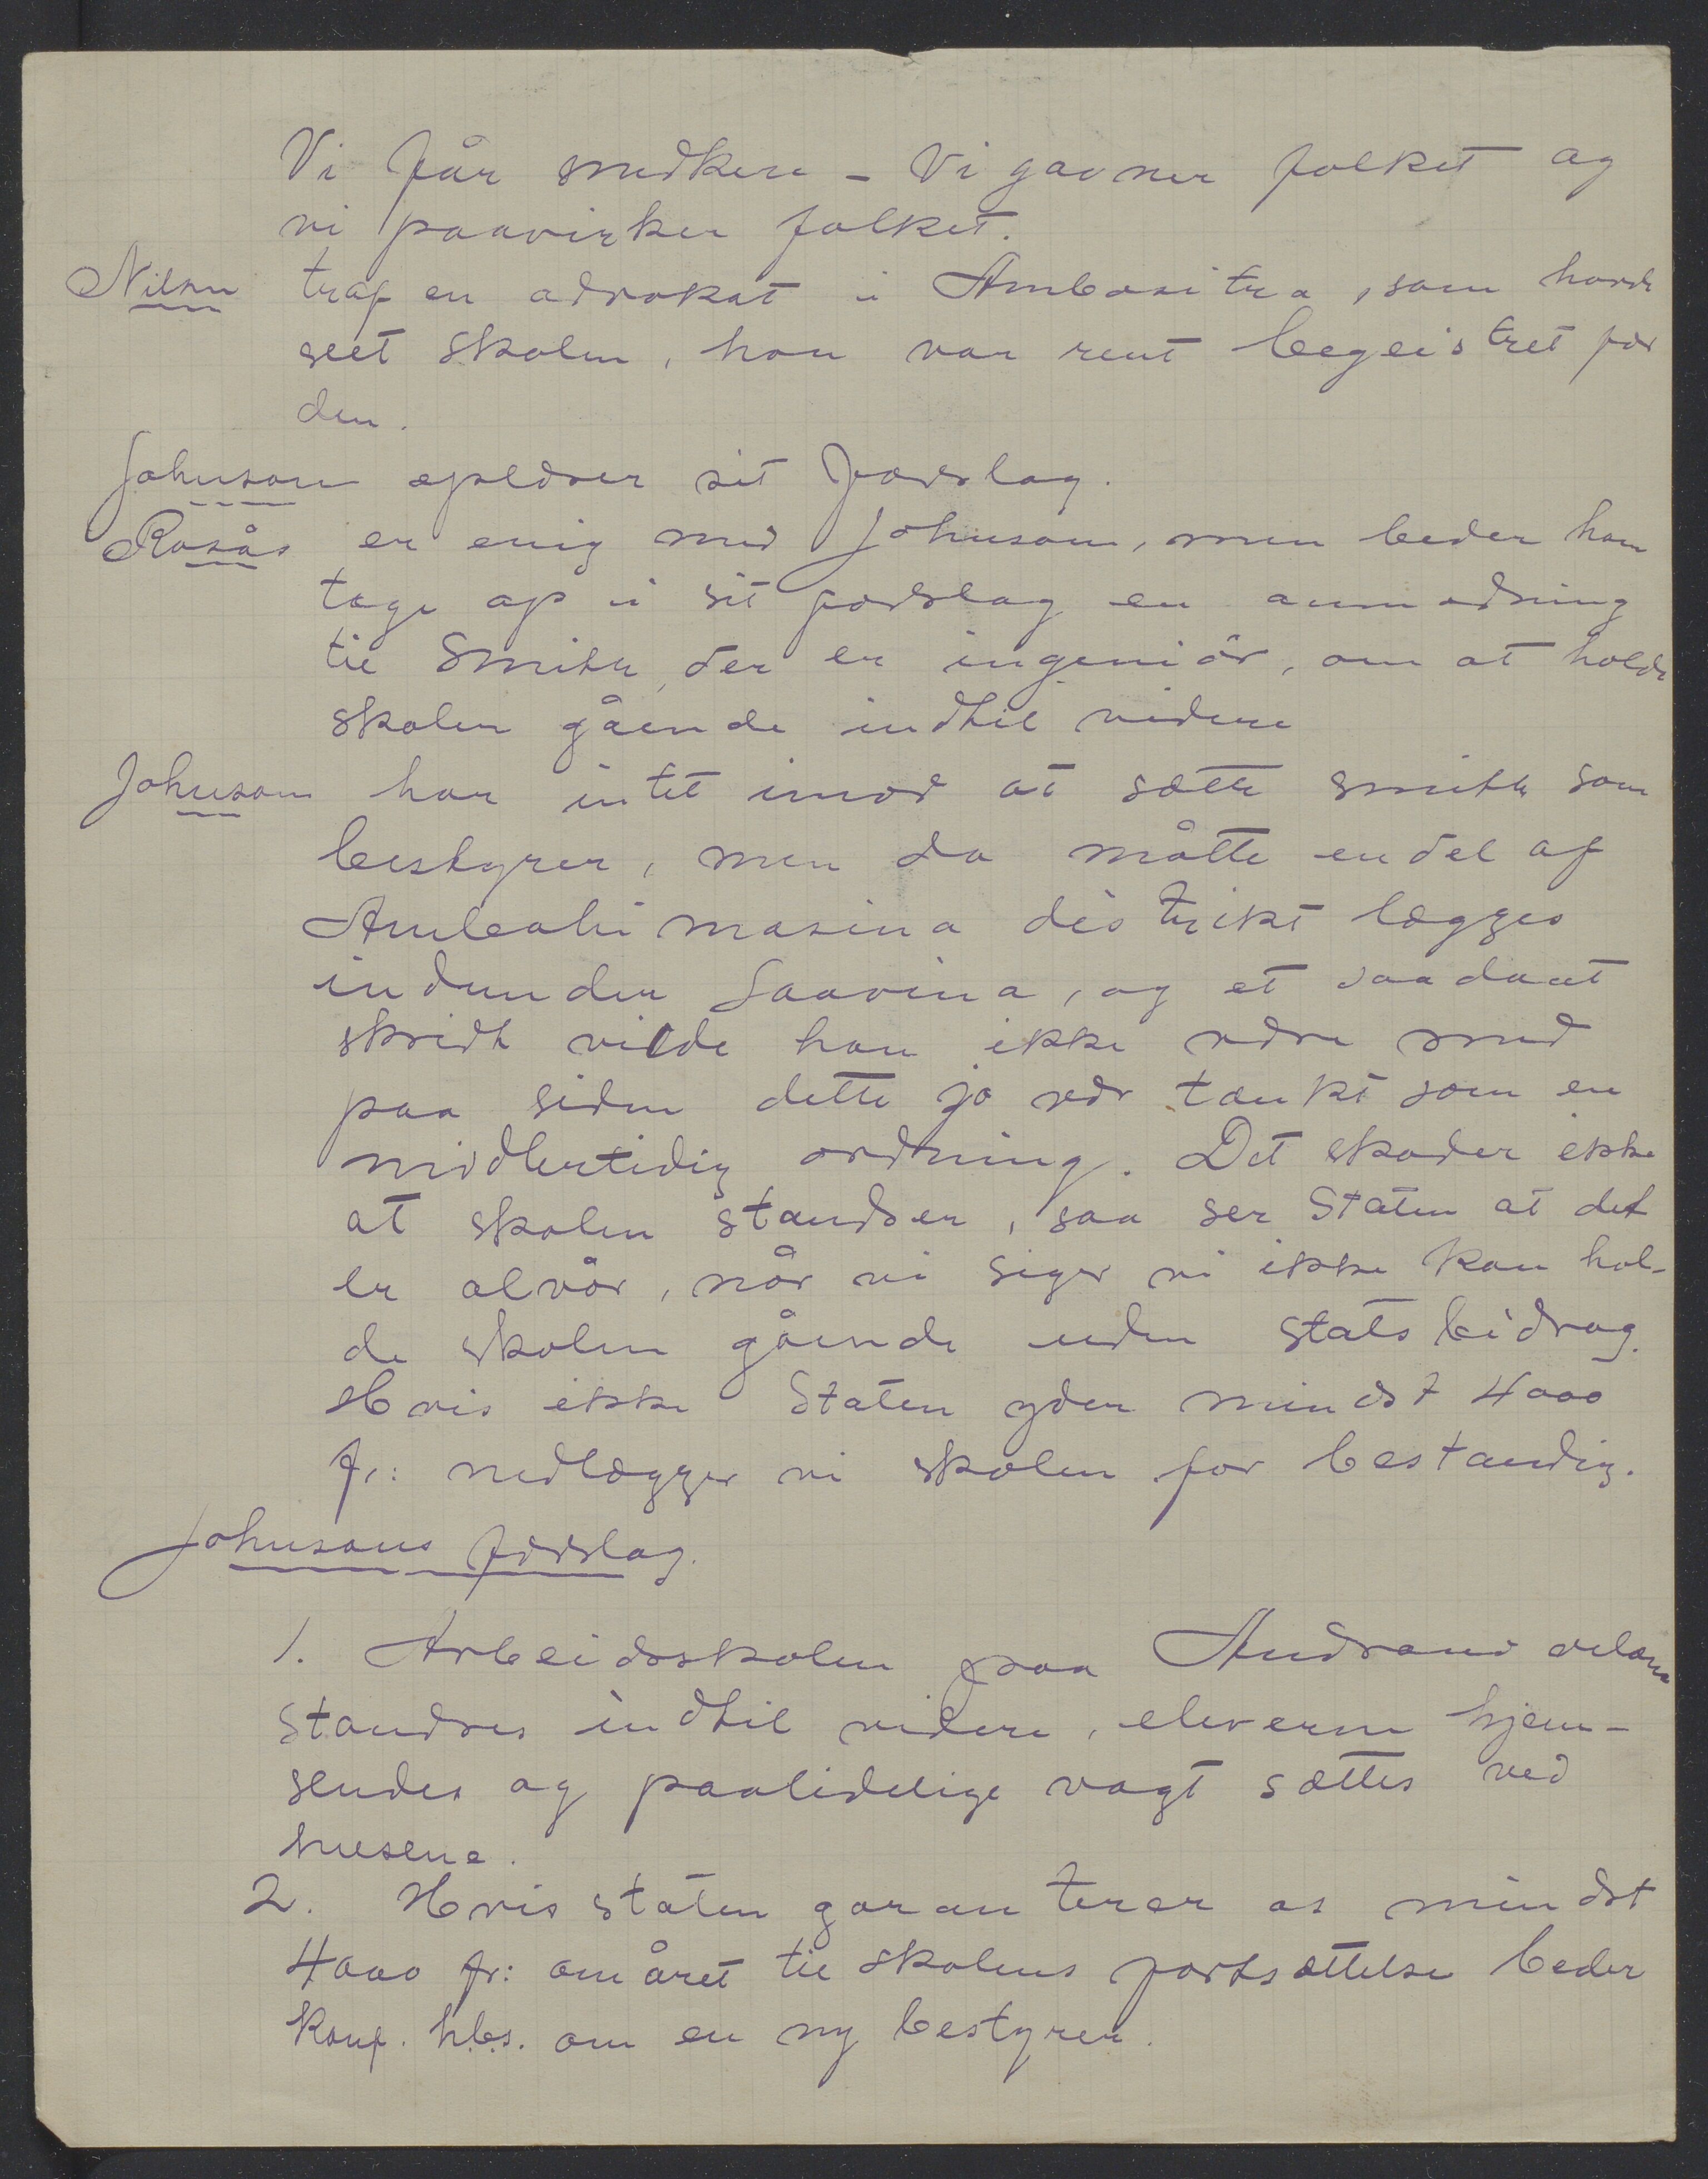 Vi får snedkere - Vi gavner folket og
vi paavirker folket.
Nilsen traf en advokat i Ambositra, som havde
seet skolen, han var rent begeistret for
den.
Johnson opleser sit forslag.
Rosås er enig med Johnson, men beder ham
tage op i sit forslag en anmodning
til Smith, der er ingeniør, om at holde
skolen gående indtil videre
Johnson har intet imod at sætte Smith som
bestyrer, men da måtte en del af
Ambohimasina distrikt lægges
indunder Soavina, og et saadant
skridt vilde han ikke være med
paa siden dette jo var tænkt som en
midlertidig ordning. Det skader ikke
at skolen standser, saa ser Staten at det
er alvår, når vi siger vi ikke kan hol-
de skolen gående uden statsbidrag.
Hvis ikke Staten yder mindst 4000
fr: nedlægger vi skolen for bestandig.
Johnsons forslag.
1. Arbeidsskolen paa
standses indtil videre, eleverne hjem-
sendes og paalidelige vagt sættes ved
husene.
2. Hvis staten garanterer os mindst
4000 fr: om året til skolens fortsættelse beder
Konf. h.b.s. om en ny bestyrer.